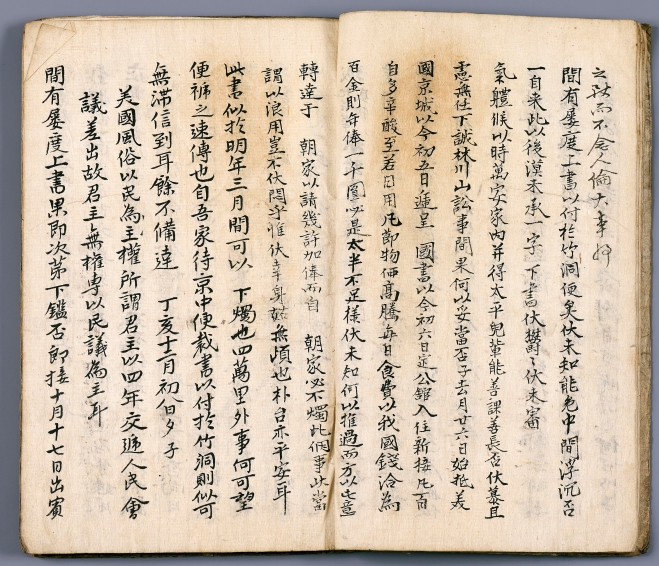 之法而不念人倫大幸好
間有屢度上書以付於竹洞便矣伏未知能免中間浮沉否
一自來此以後漠未承一字下書伏鬱鬱伏未審
氣體候以時萬安家內并得太平兒輩能善課善長否伏慕且
慮無任下誠林川山訟事間果何以妥當否子去月廿六日始抵美
國京城以今初五日遞呈 國書以今初六日定公館入住新接凡百
自多辛酸至若日用凡節物価高騰每日食費以我國錢洽為
百金則年俸一千圓必是太半不足樣伏未知何以推過而方以此意
轉達于 朝家以請幾許加俸而自 朝家必不燭此個事此當
謂以浪用豈不伏悶乎惟伏幸身姑無頉也朴台亦平安耳
此書似於明年三月間可以 下燭也四萬里外事何可望
便褫之速傳也自吾家待京中便裁書以付於竹洞則似可
無滯信到耳餘不備達 丁亥十二月初八日夕子
美國風俗以民為主權所謂君主以四年交遞人民會
議差出故君主無權專以民議為主耳
間有屢度上書果即次第下鑑否卽接十月十七日出賓